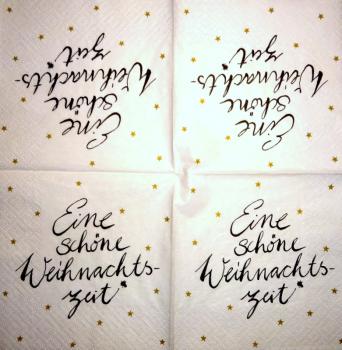 Eine
schöne
Weihnachts-
zeit
Eine
schöne
Weihnachts-
zeit
Eine
schöne
Weihnachts-
zeit
Eine
schöne
Weihnachts-
zeit